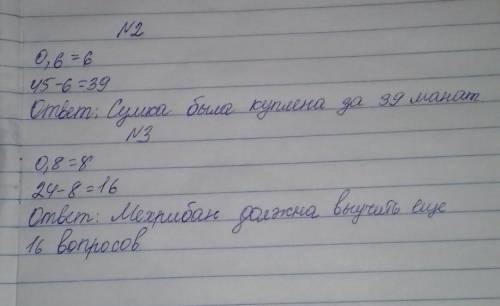 N2
0,6=6
45-6=39
Ответ: Сумка была куплена за 39 манат
N3
0,8=8
24-8=16
Ответ: Мехрибан должна выучить еще
16 вопросов